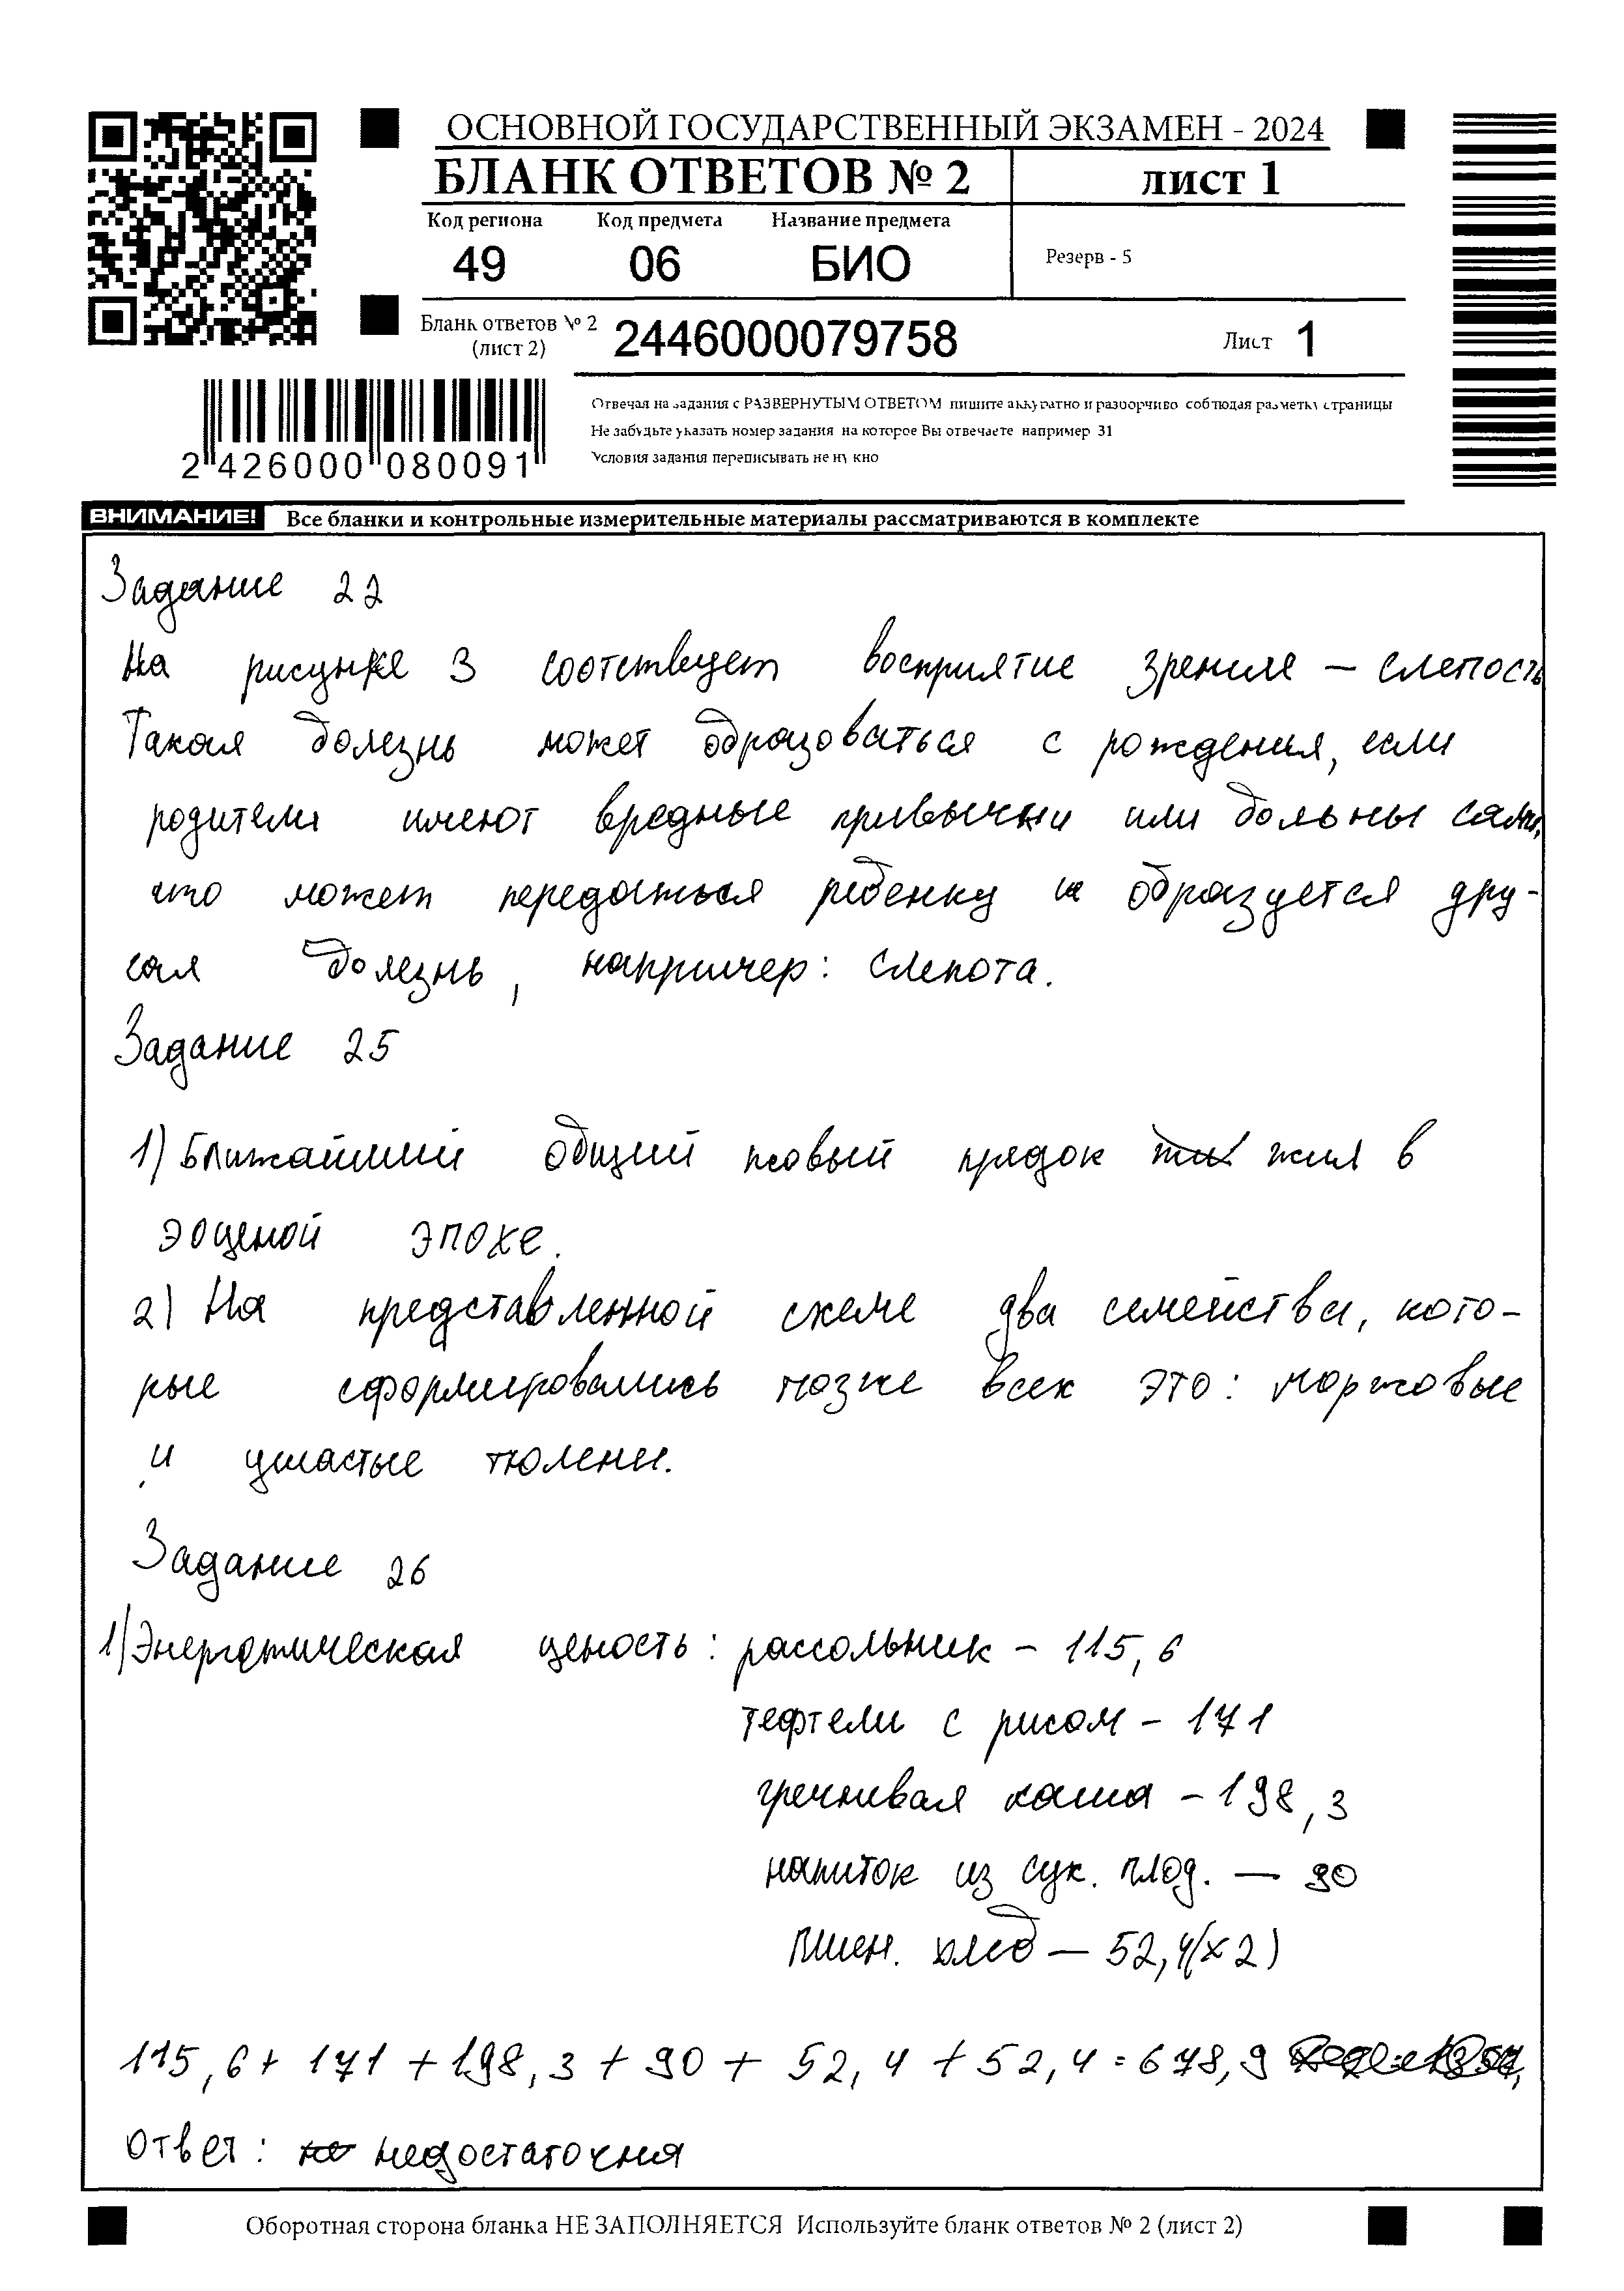 ОСНОВНОЙ ГОСУДАРСТВЕННЫЙ ЭКЗАМЕН - 2024
БЛАНК ОТВЕТОВ № 2 лист 1
Код региона Код предмета Название предмета
49 06 БИО Резерв - 5
Бланк ответов № 2 (лист 2) 2446000079758 Лист 1
Отвечая на задания с РАЗВЕРНУТЫМ ОТВЕТОМ пишите аккуратно и разборчиво соблюдая разметку страницы
Не забудьте указать номер задания на которое Вы отвечаете например 31
Условия задания переписывать не нужно
2 426000 080091
ВНИМАНИЕ! Все бланки и контрольные измерительные материалы рассматриваются в комплекте
Задание 22
На рисунке 3 соотствует восприятие зрение – слепость
Такая болезнь может образоваться с рождения, если
родители имеют вредные привычки или больны сами,
что может передаться ребенку и образуется дру-
гая болезнь, например: слепота.
Задание 25
1) Ближайший общий псовый предок жил в
эоценой эпохе.
2) На представленной схеме два семейства, кото-
рые сформировались позже всех это: моржовые
и ушастые тюлени.
Задание 26
1) Энергетическая ценость: рассольник – 115,6
тефтели с рисом – 171
гречневая каша – 198,3
напиток из сух. плод. — 90
пшен. хлеб — 52,4(х2)
115,6 + 171 + 198,3 + 90 + 52,4 + 52,4 = 678,9
Ответ: недостаточня
Оборотная сторона бланка НЕ ЗАПОЛНЯЕТСЯ Используйте бланк ответов № 2 (лист 2)